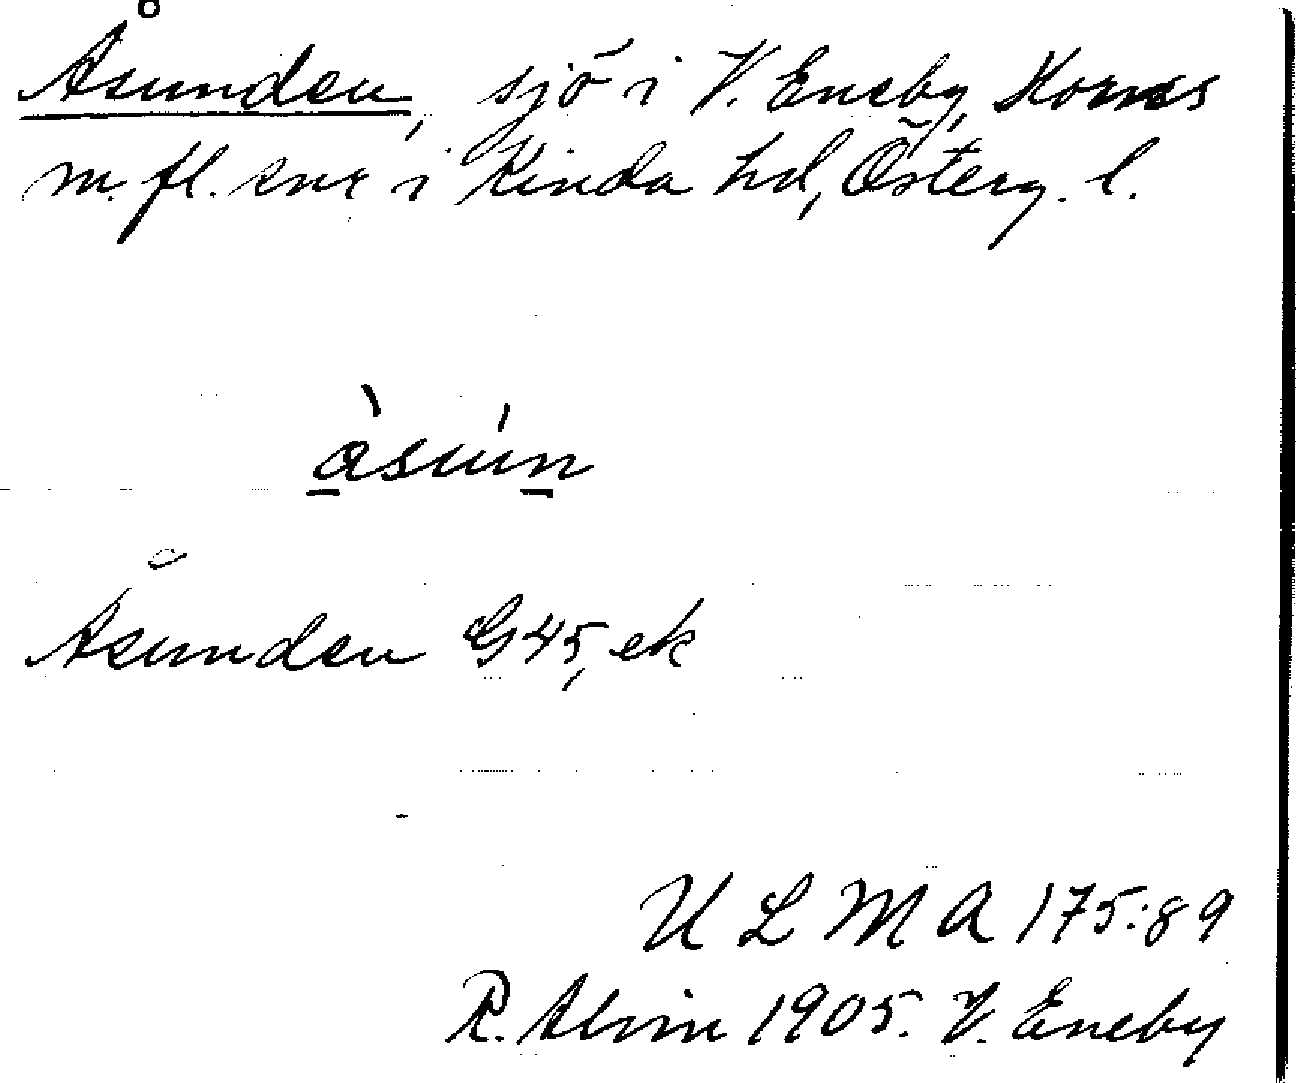 Åsunden, sjö i V. Eneby, Horns
m. fl. snr i Kinda hd, Österg. l.
àsuń
Åsunden G45, ek
U L M A 175:89
R. Alvin 1905. V. Eneby